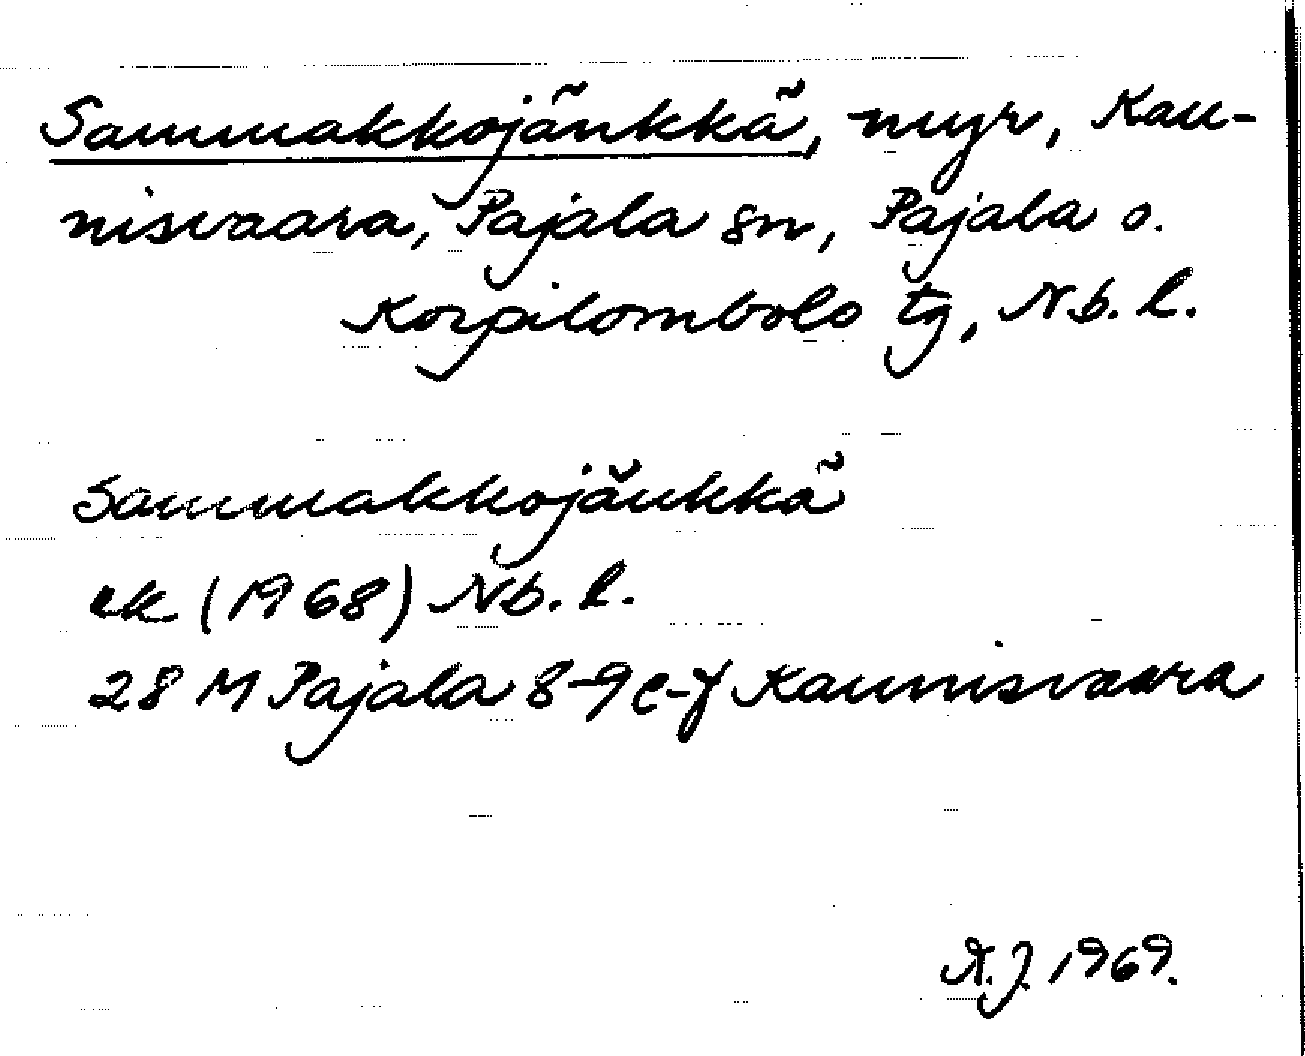 Sammakkojänkkä, myr, Kau-
nisvaara, Pajala sn, Pajala o.
Korpilombolo tg, Nb. l.
Sammakkojänkkä
ek (1968) Nb. l.
28 M Pajala 8-9 e-f Kaunisvaara
A.J. 1969.